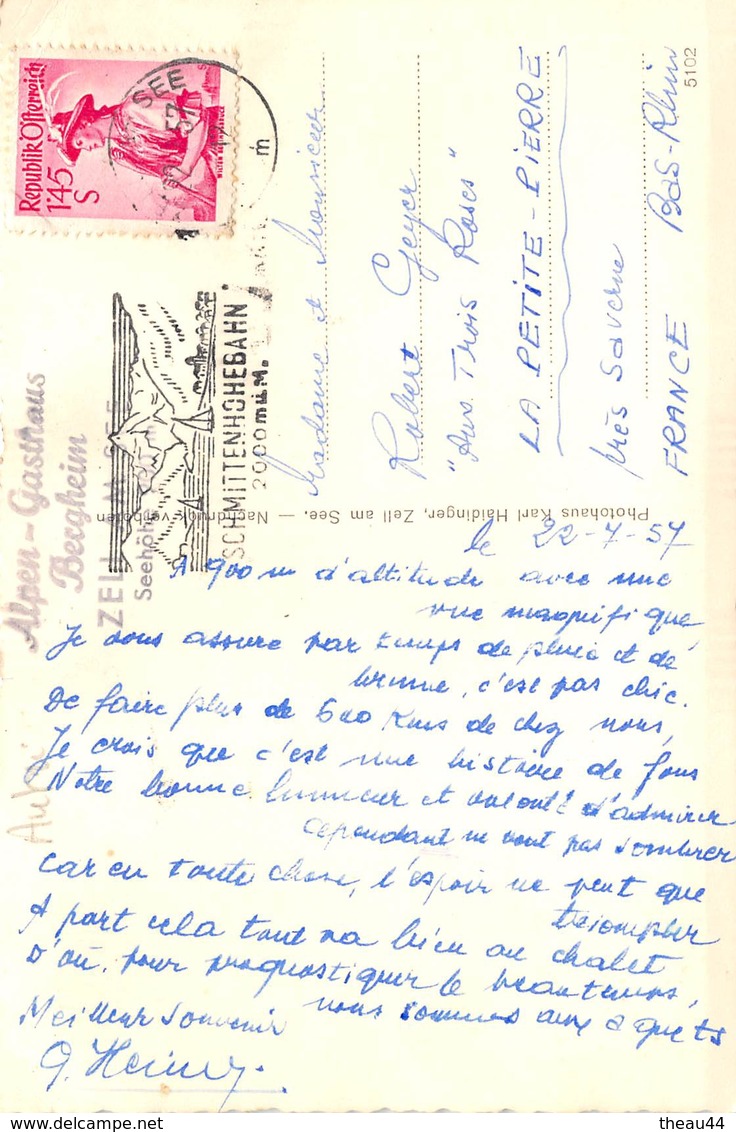 Republik Österreich
1'45
S
SEE
57
SCHMITTENHÖHEBAHN
2000 m.ü.M.
Alpen-Gasthaus
Bergheim
ZELL
Seehöhe
5102
Photohaus Karl Haidinger, Zell am See. — Nachdruck verboten
Madame et Monsieur
Robert Geyer
"Aux Trois Roses"
LA PETITE-PIERRE
près Saverne
FRANCE Bas-Rhin
le 22-7-57
A 900 m d'altitude avec une
vue magnifique,
Je vous assure par temps de pluie et de
brume, c'est pas chic.
De faire plus de 600 Kms de chez nous,
Je crois que c'est une histoire de fous
Notre bonne humeur et volonté d'admirer
cependant ne vont pas sombrer
Car en toute chose, l'espoir ne peut que
triompher
A part cela tout va bien au chalet
D'où, pour prognostiquer le beau temps,
nous sommes aux aguets
Meilleur souvenir
theau44